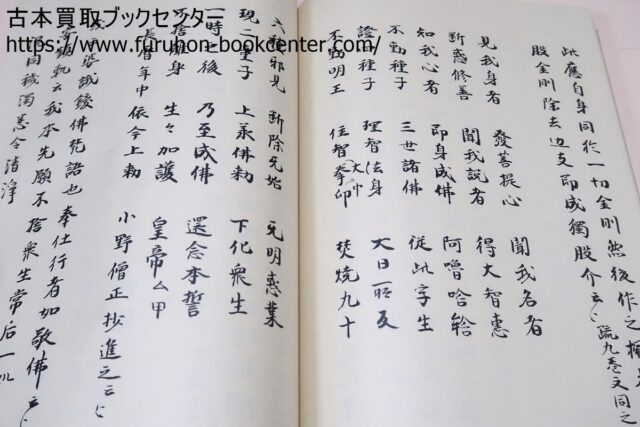 古本買取ブックセンター
https://www.furuhon-bookcenter.com/
此應自身同於一切金剛然後作之
股金剛除去邊支即成獨股介云〻疏九卷文同之
見我身者 發菩提心 聞我名者
斷惑修善 聞我説者 得大智惠
知我心者 即身成佛 阿嚕唅
不動種子 三世諸佛 從此字生
證種子 理智法身 大日
不動明王 住智拳印 焚燒九十
六種邪見 斷除无始 无明惑業
現二童子 上承佛勅 下化衆生
一時 後 乃至成佛 還念本誓
不捨 身 生々加護 皇帝厶甲
長暦年中 依今上勅 小野僧正抄進之云〻
佛梵語也 奉仕行者如敬佛云〻
軌云我本先願不捨衆生常
同穢濁悉令清淨